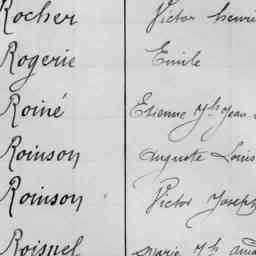 Rocher Victor henri
Rogerie Emile
Roiné Etienne Jh Jean
Roinson Auguste Louis
Roinson Victor Joseph
Roisnel Marie Jh